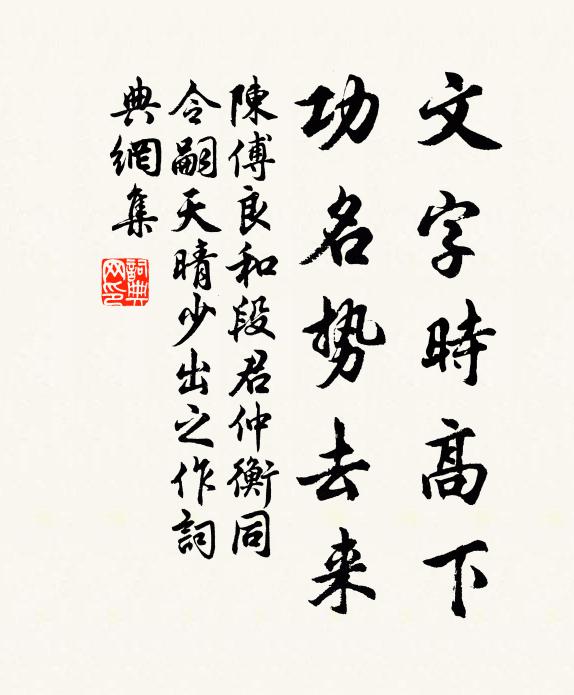 文字時高下
功名勢去来
陳傅良和段君仲衡同
令嗣天晴少出之作詞
典網集
詞典网印